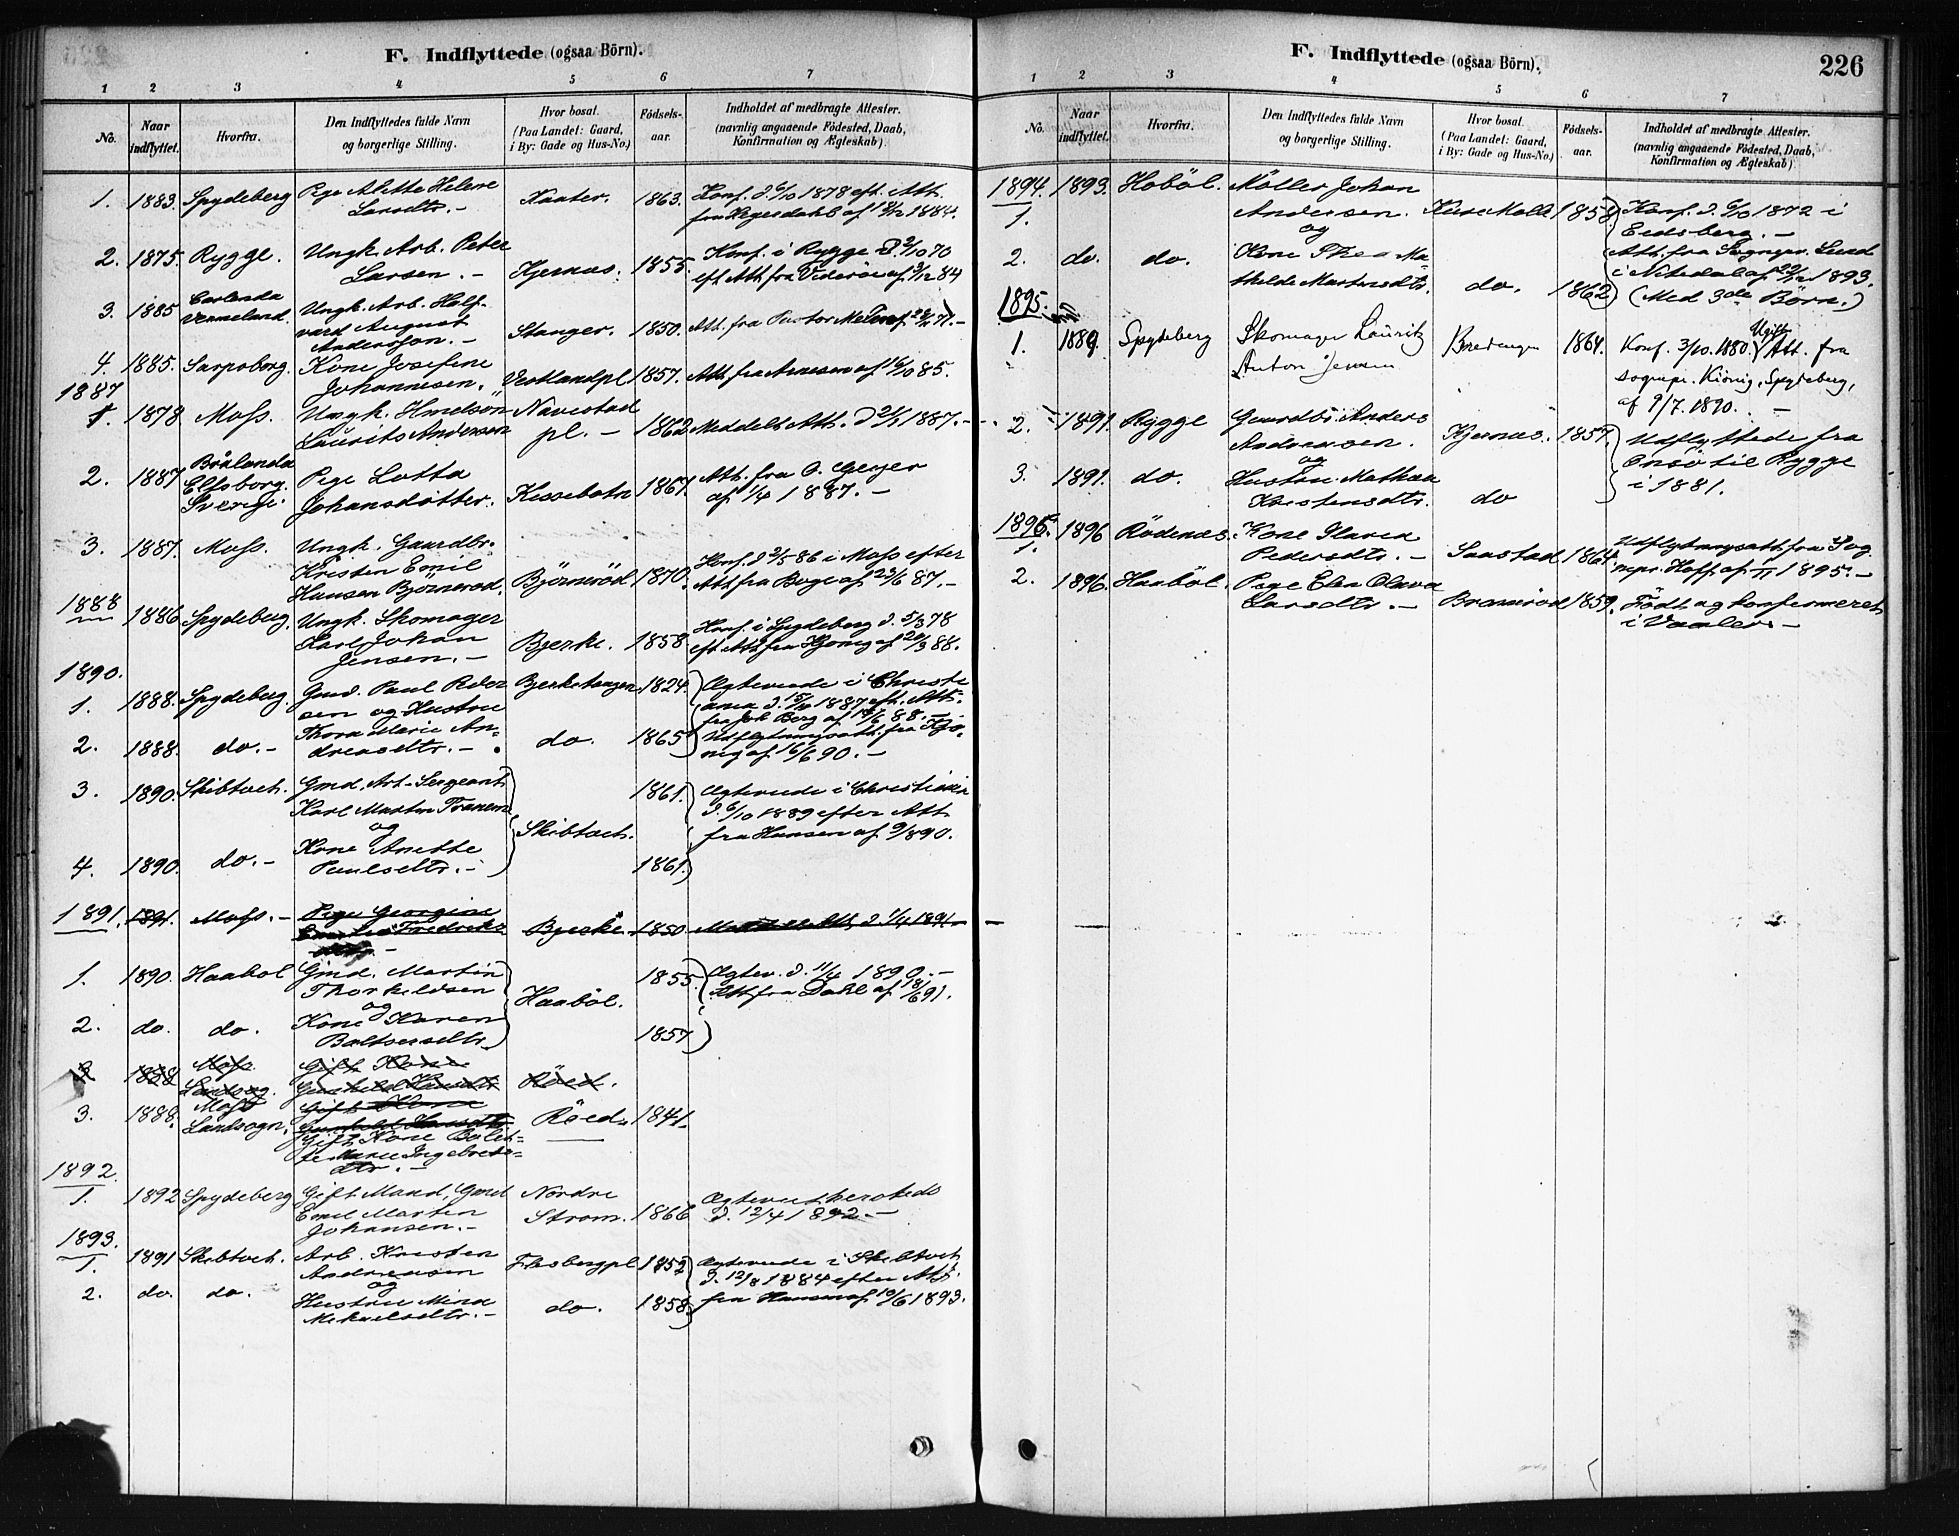 F. Indflyttede (ogsaa Börn).
1 2 3 4 5 6 7
No. Naar indflyttet. Hvorfra. Den Indflyttedes fulde Navn og borgerlige Stilling. Hvor bosat. (Paa Landet: Gaard, i By: Gade og Hus-No.) Fødsels-aar. Indholdet af medbragte Attester. (navnlig angaaende Födested, Daab, Konfirmation og Ægteskab).
1. 1883. Spydeberg Pige Alette Helene Kaater. 1863. Konf. d. 6/10 1878 eft. Att.
Larsdtr. -
2. 1875. Rygge. Ungk. Arb. Peter Kjernæs. 1855. Konf. i Rygge d. 2/10 70
Larsen. -
3. 1885 Ungk. Arb. Half-
vard August Stanger. 1850. Att. fra Pastor
Andersson. -
4. 1885. Sarpsborg. Kone Josefine Vestlandpl 1857. Att. fra Arnesen af 16/10 85.
Johannesen.
1887
1. 1878 Moss. Ungk. Navestad
Laurits Andersen pl. - 1862 Meddelt Att. d. 2/1 1887. -
2. 1887 Pige Lotta Att. fra
Elfsborg. Johansdotter. Kessebotn 1861. af 1/4 1887. -
Sverige
3. 1887. Moss. Ungk. Gaardbr.
Kristen Emil Björneröd 1870. Konf. d. 2/5 86 i Moss efter
Hansen Björnerød. Att. fra Boge af 23/6 87. -
1888
1886 Spydeberg. Ungk. Skomager Bjerke. 1858. Konf. i Spydeberg d. 5/3 78
Karl Johan eft Att. fra af 20/3 88.
Jensen. -
1890.
1. 1888. Spydeberg. Gmd. Paul Peder Bjerketangen 1824. Ægteviede i Christi
sen og Hustru ania d. 1887 eft. Att.
2. 1888. do. - Thora Marie An- do. 1865 fra Berg af 88. -
dreasdtr. - Udflytningsatt. fra Kjö-
nig af 16/6 90. -
3. 1890. Skibtvet. Gmd. Art. Sergeant 1861. Ægteviede i Christiania
Karl Martin Tranem d. 6/10 1889 efter Att.
og Skibtvet. fra Hansen af 9/8 90.
4. 1890. do. - Kone Anette 1861.
Paulsdtr. -
1891. 1891. Moss. - Pige Georgine Bjerke 1850 Meddelt Att. d. 1/4 1891
1. 1890. Haabol Gmd. Martin 1855. Ægtev. d. 11/4 1890. -
Thorkeldsen Haaböl. Att. fra Dahl af 18/6 91.
og
2. do. do. Kone Karen 1857
3 1888 Moss Gift Kone
Landsog. Röed.
3. 1888. Moss Gift Kone Röed. 1841.
Landsogn.
Gift Kone
Marie Ingebrets-
dtr. -
1892.
1. 1892 Spydeberg Gift Mand, Gmd Nordre Ægteviet hersteds
Emil Martin Strøm. 1866 d. 12/4 1892. -
Johansen. -
1893.
1. 1891 Skibtvet. Arb. Kristen 1852 Ægteviede i Skibtvet
Andreasen d. 12/8 1884 efter Att.
og
2. do. do. Hustru Mina do. 1858 fra Hansen af 10/6 1893.
Mikaelsdtr. -
F. Indflyttede (ogsaa Börn).
226
1 2 3 4 5 6 7
No. Naar indflyttet. Hvorfra. Den Indflyttedes fulde Navn og borgerlige Stilling. Hvor bosat. (Paa Landet: Gaard, i By: Gade og Hus-No.) Fødsels-aar. Indholdet af medbragte Attester. (navnlig angaaende Födested, Daab, Konfirmation og Ægteskab)
1894. 1893. Hobøl. Møller Johan
1. Andersen. Kure Mølle 1858 Konf. d. 6/10 1872 i
og Eidsberg. -
2. do. do. Kone Thea Ma- Att. fra Sognepr. Lund
thilde Martinsdtr. do. 1862 i Nitedal af 1893.
(Med 3de Börn.)
1895.
1. 1889 Spydeberg Skomager Lauritz 1864. Konf. 3/10. 1880. Ugift Att. fra
Anton Jensen sognepr. Kiönig, Spydeberg,
af 9/7. 1890. -
2. 1891. Rygge Gaardbr. Anders Kjernæs. 1857. Udflyttede fra
Andreassen. Onsö til Rygge
og i 1881.
3. 1891. do. Hustru Mathea do
Kristensdtr.
1896.
1. 1896 Rödenæs. Kone Maren Saastad 1864. Udflytningsatt. fra Sog-
Pedersdtr. - nepr. Hoff. af 1895. -
2. 1896. Haaböl. Pige Else Olava
Larsdtr. - 1859. Födt og konfirmeret
i Vaaler. -